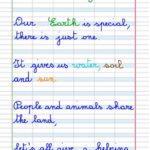 Our Earth is special,
there is just one.
It gives us water, soil
and sun.
People and animals share
the land,
let's all give a helping